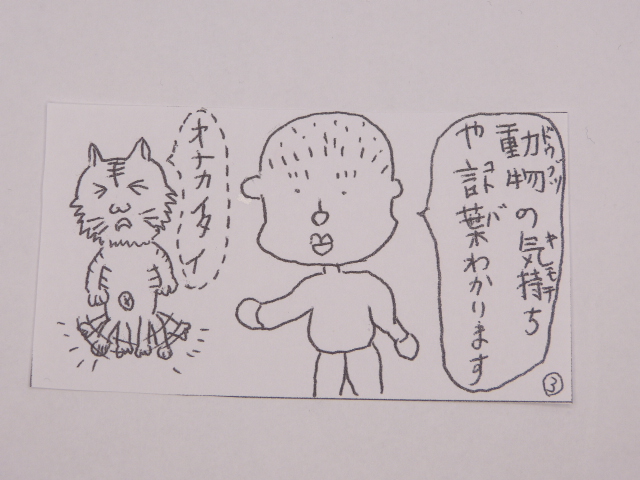 動物の気持ち
ドウブツ
キモチ
や言葉わかります
コトバ
オナカイタイ
3